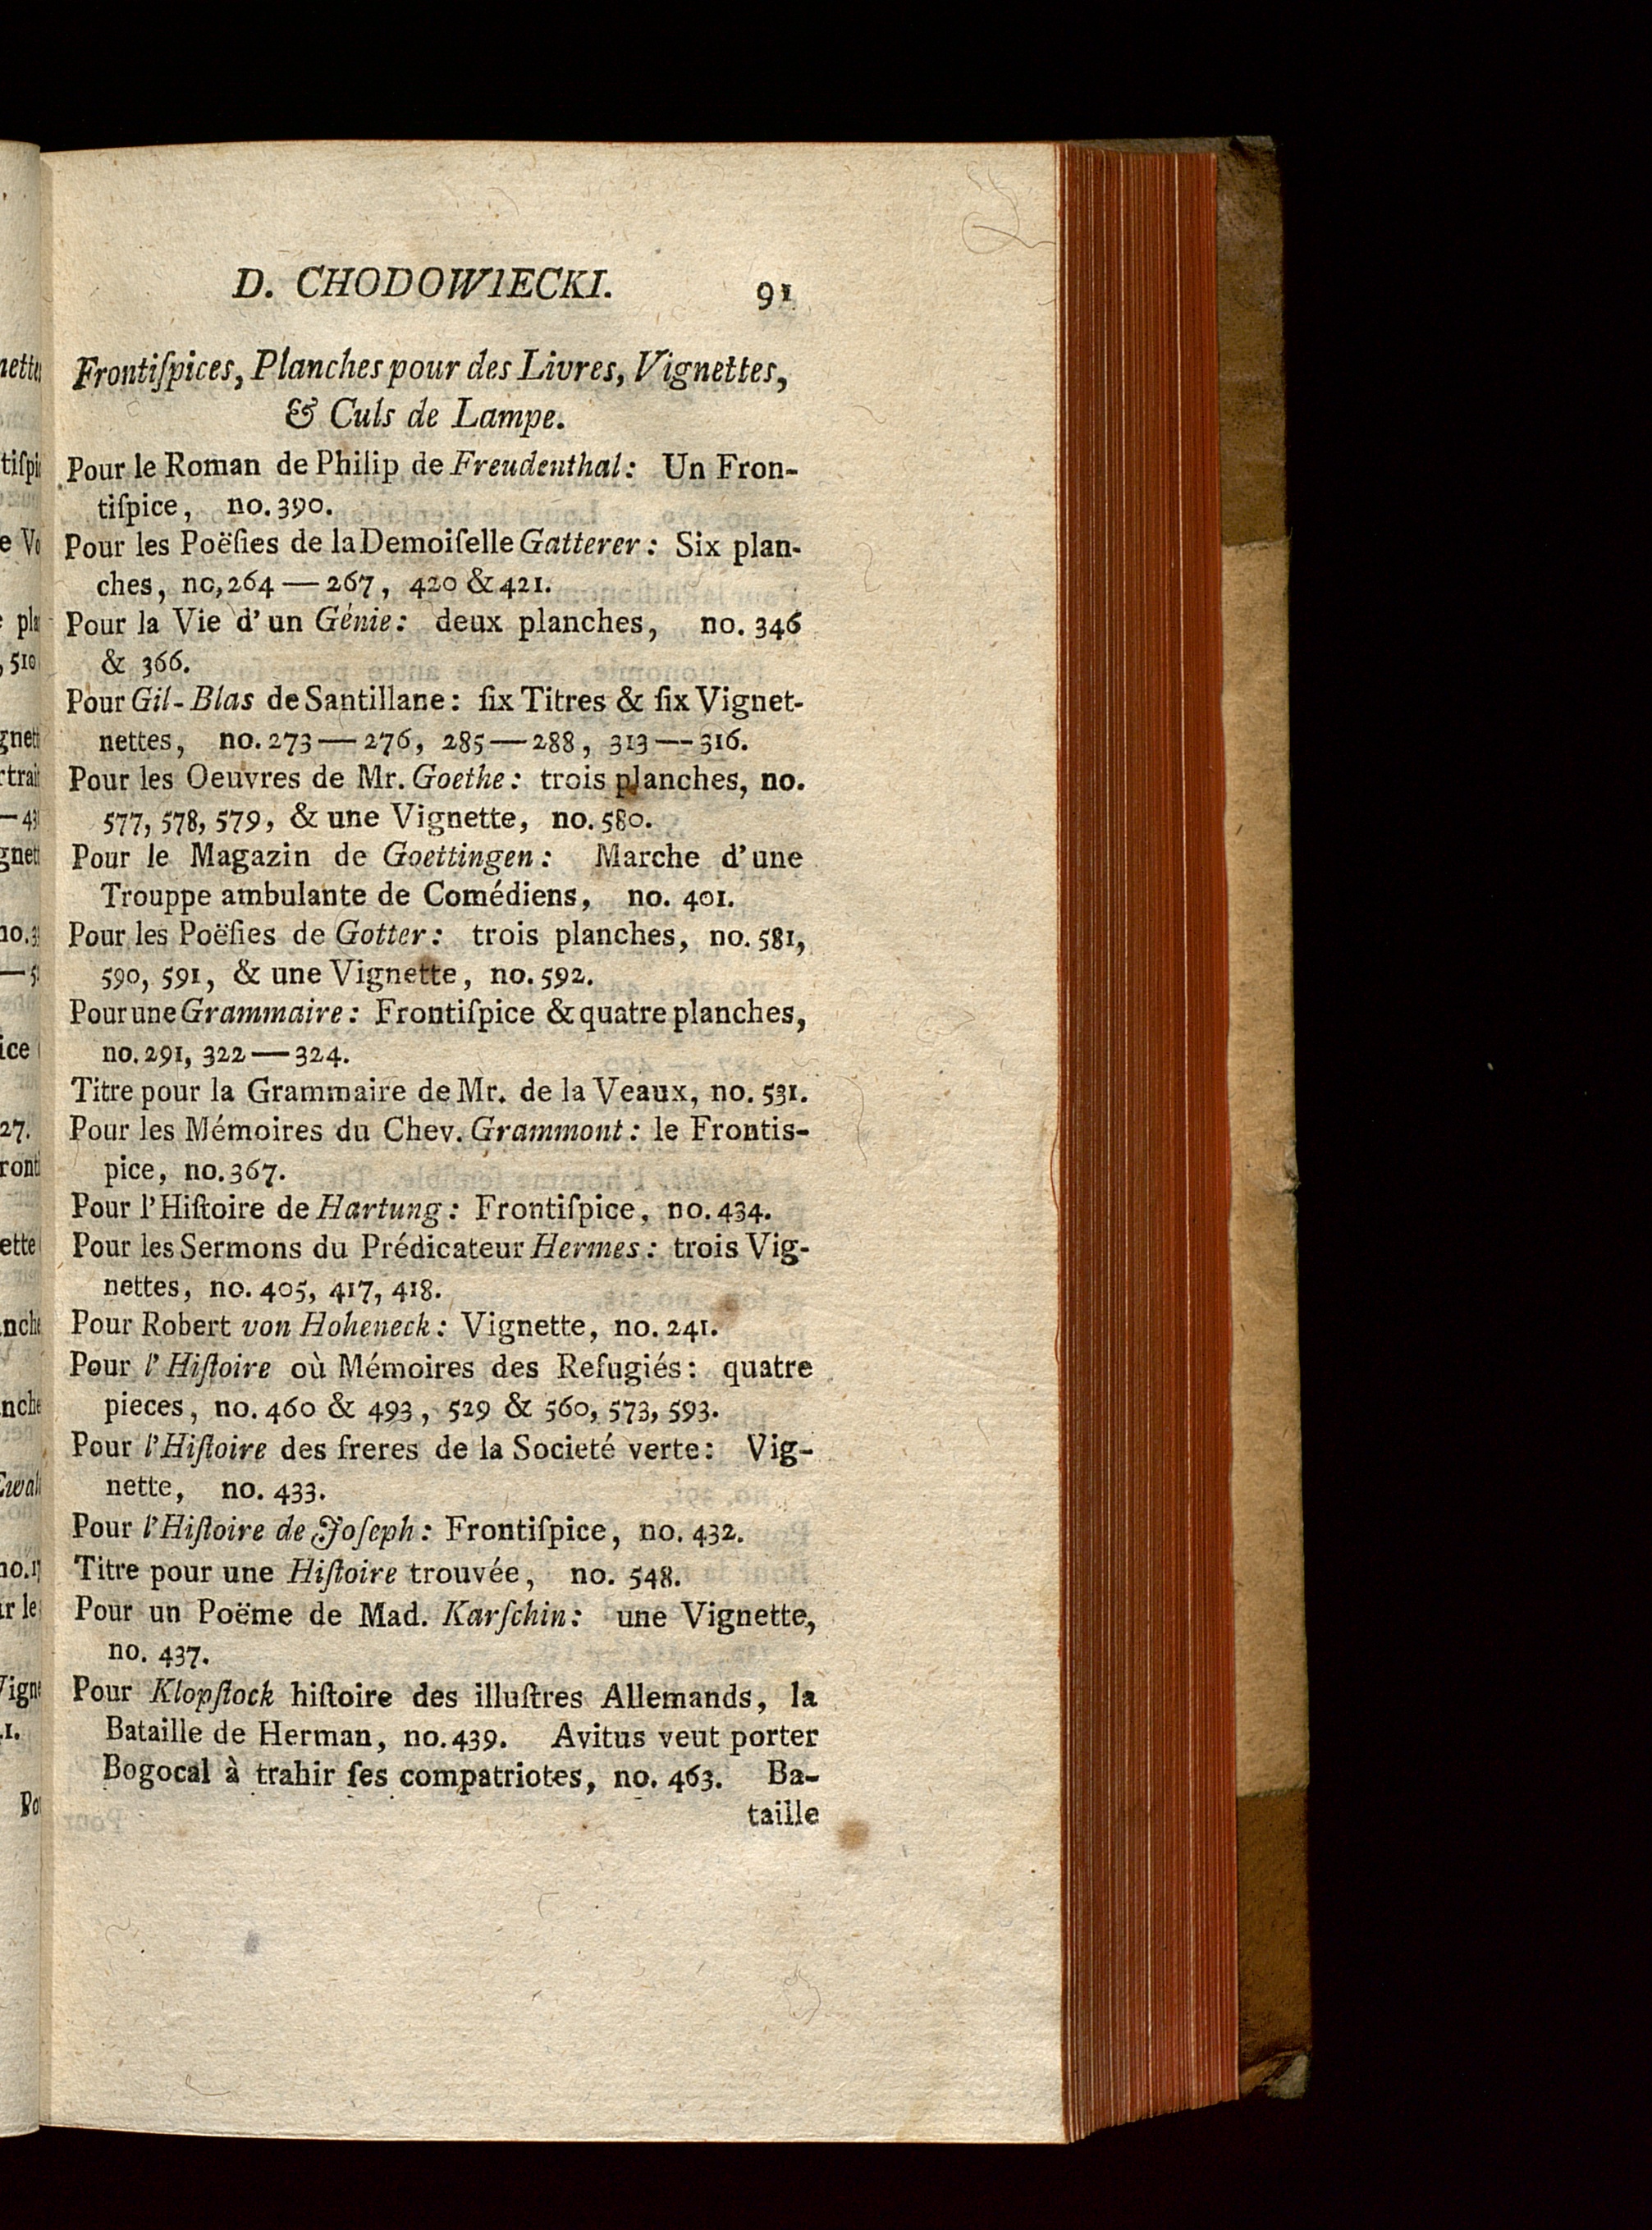 D. CHODOWIECKI. 91
Frontiſpices, Planches pour des Livres, Vignettes,
& Culs de Lampe.
Pour le Roman de Philip de Freudenthal: Un Fron-
tiſpice, no. 390.
Pour les Poëſies de la Demoiſelle Gatterer: Six plan-
ches, no, 264 — 267, 420 & 421.
Pour la Vie d'un Génie: deux planches, no. 346
& 366.
Pour Gil-Blas de Santillane: ſix Titres & ſix Vignet-
nettes, no. 273 — 276, 285 — 288, 313 — 316.
Pour les Oeuvres de Mr. Goethe: trois planches, no.
577, 578, 579, & une Vignette, no. 580.
Pour le Magazin de Goettingen: Marche d'une
Trouppe ambulante de Comédiens, no. 401.
Pour les Poëſies de Gotter: trois planches, no. 581,
590, 591, & une Vignette, no. 592.
Pour une Grammaire: Frontiſpice & quatre planches,
no. 291, 322 — 324.
Titre pour la Grammaire de Mr. de la Veaux, no. 531.
Pour les Mémoires du Chev. Grammont: le Frontis-
pice, no. 367.
Pour l'Hiſtoire de Hartung: Frontiſpice, no. 434.
Pour les Sermons du Prédicateur Hermes: trois Vig-
nettes, no. 405, 417, 418.
Pour Robert von Hoheneck: Vignette, no. 241.
Pour l'Hiſtoire où Mémoires des Refugiés: quatre
pieces, no. 460 & 493, 529 & 560, 573, 593.
Pour l'Hiſtoire des freres de la Societé verte: Vig-
nette, no. 433.
Pour l'Hiſtoire de Joſeph: Frontiſpice, no. 432.
Titre pour une Hiſtoire trouvée, no. 548.
Pour un Poëme de Mad. Karſchin: une Vignette,
no. 437.
Pour Klopſtock hiſtoire des illuſtres Allemands, la
Bataille de Herman, no. 439. Avitus veut porter
Bogocal à trahir ſes compatriotes, no. 463. Ba-
taille